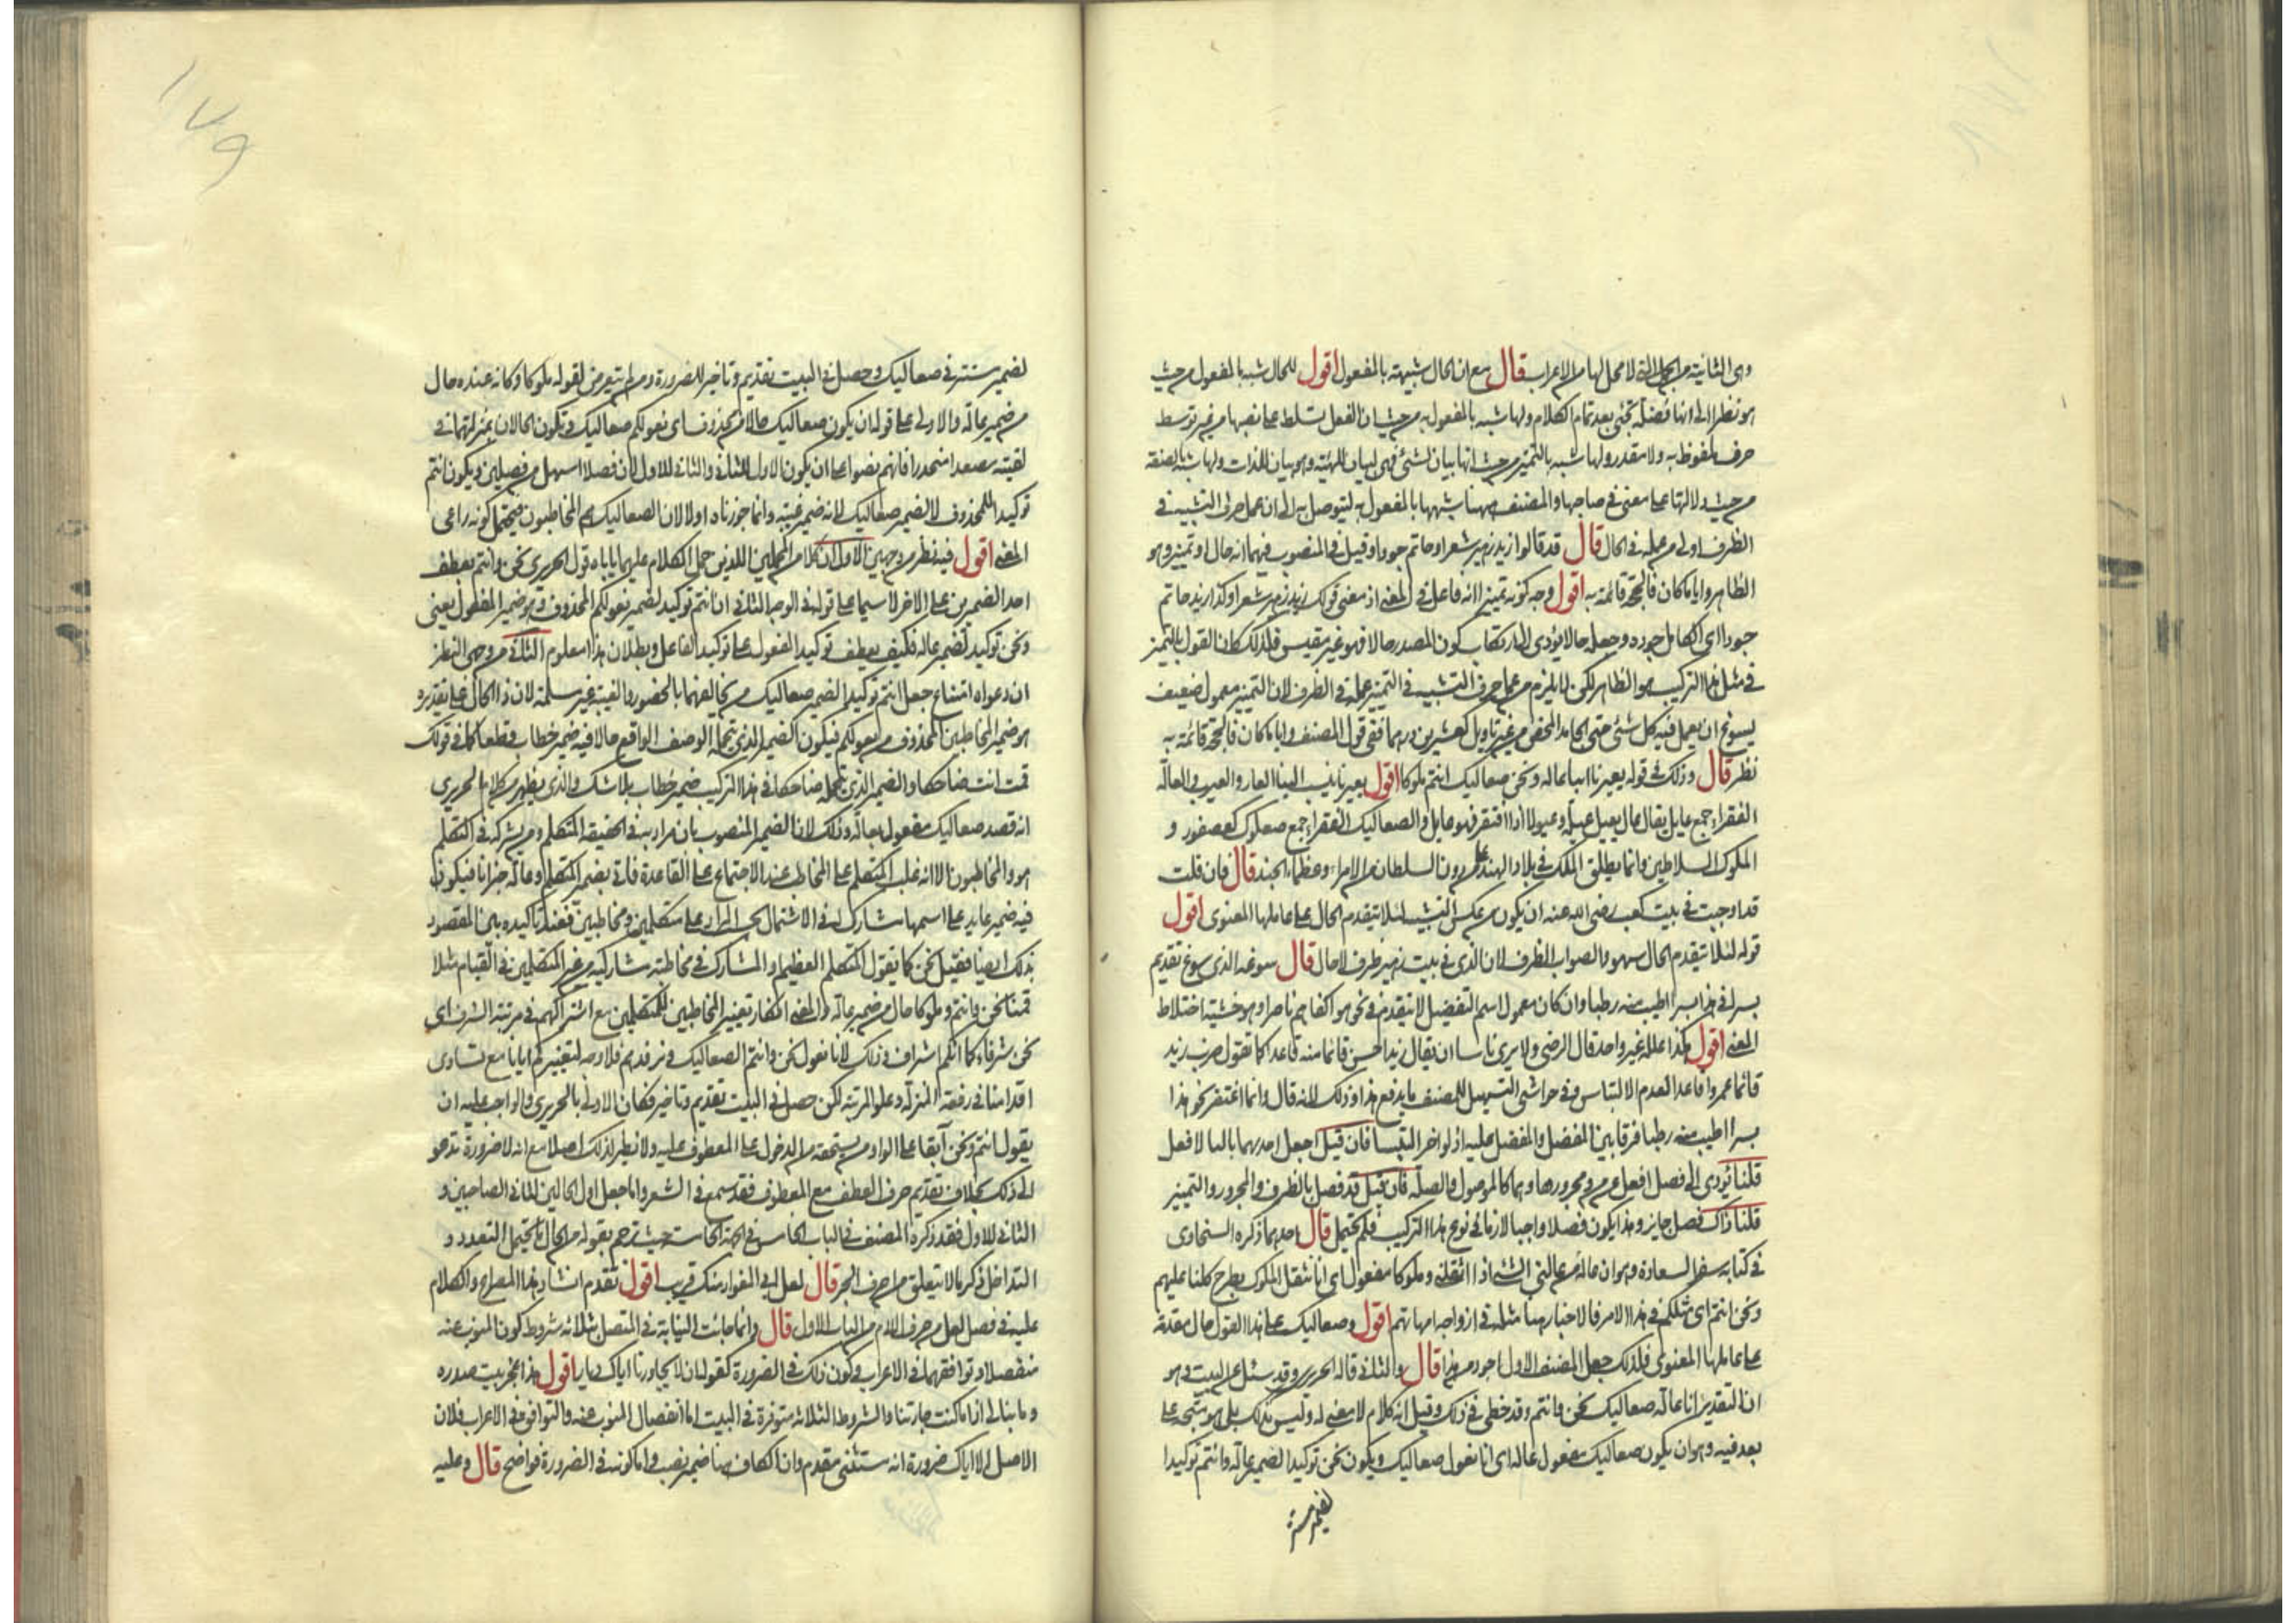 وهى الثانية من الجمل التى لا محل لها من الاعراب قال مع ان الحال شبيهة بالمفعول اقول للحال شبه بالمفعول من حيث
هو نظرا الى انها فضلة تجئ بعد تمام الكلام ولها شبه بالمفعول به من حيث ان الفعل تسلط على نصبها من غير توسط
حرف ملفوظ به ولا مقدر ولها شبه بالتمييز من حيث انها بيان لشئ فهى لبيان الهيئة وهو بيان للذات ولها شبه بالصفة
من حيث دلالتها على معنى فى صاحبها والمصنف ههنا شبهها بالمفعول به ليتوصل به الى ان عمل حرف التشبيه فى
الظرف اولى من عمله فى الحال قال قد قالوا زيد زهير شعرا وحاتم جودا وقيل فى المنصوب فيهما انه حال او تمييز وهو
الظاهر وايا ما كان فالحجة قائمة به اقول وجه كونه تمييزا انه فاعل فى المعنى اذ معنى قولك زيد زهير شعرا وكذا زيد حاتم
جودا اى الكامل جوده وجعله حالا يؤدى الى ارتكاب كون المصدر حالا فهو غير مقيس فلذلك كان القول بالتمييز
فى مثل هذا التركيب هو الظاهر لكن لا يلزم من عمل حرف التشبيه فى التمييز عمله فى الظرف لان التمييز معمول ضعيف
يسوغ ان يعمل فيه كل شئ حتى الجامد المحض من غير تاويل كعشرين درهما ففى قول المصنف وايا ما كان فالحجة قائمة به
نظر قال وذلك فى قوله يعيرنا اننا عالة ونحن صعاليك انتم ملوكا اقول يعيرنا ينسب الينا العار والعيب والعالة
الفقراء جمع عايل يقال عال يعيل عيلة وعيولا اذا افتقر فهو عايل والصعاليك الفقراء جمع صعلوك كعصفور و
الملوك السلاطين وانما يطلق الملك فى بلاد الهند على من دون السلطان من الامراء وعظماء الجند قال فان قلت
قد اوجبت فى بيت كعب رضى الله عنه ان يكون من عكس التشبيه لئلا يتقدم الحال على عاملها المعنوى اقول
قوله لئلا يتقدم الحال سهو والصواب الظرف لان الذى فى بيت زهير ظرف لا حال قال سوغه الذى سوغ تقديم
بسرا فى هذا بسرا اطيب منه رطبا وان كان معمول اسم التفضيل لا يتقدم فى نحو هو اكفاهم ناصرا وهو خشية اختلاط
المعنى اقول هكذا علله غير واحد قال الرضى ولا يرى باسا ان يقال زيد احسن قائما منه قاعدا كما تقول ضرب زيد
قائما عمروا قاعدا لعدم الالتباس وفى حواشى التسهيل للمصنف ما يدفع هذا وذلك لانه قال وانما اغتفر نحو هذا
بسرا اطيب منه رطبا فرقا بين المفضل والمفضل عليه اذ لو اخر التبسا فان قيل اجعل احدهما باليا لافعل
قلنا يؤدى الى فصل افعل من من ومجرورها وهما كالموصول والصلة فان قيل قد فصل بالظرف والمجرور والتمييز
قلنا ذاك فصل جايز وهذا يكون فصلا واجبا لازما فى نوع هذا التركيب فلم يحتمل قال احدهما ذكره السخاوى
فى كتابه سفر السعادة وهو ان عالة من عالنى الشئ اذا اثقلنى وملوكا مفعول اى انا نثقل الملوك بطرح كلنا عليهم
ونحن انتم اى مثلكم فى هذا الامر فالاخبار هنا مثله فى ازواجه امهاتهم اقول وصعاليك على هذا القول حال مقدمة
على عاملها المعنوى فلذلك جعل المصنف الاول اجود من هذا قال والثانى قاله الحريرى وقد سئل عن البيت وهو
ان التقدير انا عالة صعاليك نحن وانتم وقد خطئ فى ذلك وقيل انه كلام لا معنى له وليس كذلك بل هو متجه على
بعد فيه وهو ان يكون صعاليك مفعول عالة اى انا نعول صعاليك ويكون نحن توكيدا لضمير عالة وانتم توكيدا
لضمير مستتر
١٧٩
لضمير مستتر فى صعاليك وحصل فى البيت تقديم وتاخير للضرورة ولم يتعرض لقوله ملوكا وكانه عنده حال
من ضمير عالة والاولى على قوله ان يكون صعاليك حالا من محذوف اى نعولكم صعاليك وتكون الحالان بمنزلتهما فى
لقيته مصعدا منحدرا فانهم نصوا على ان يكون الاول للثانى والثانى للاول لان فصلا اسهل من فصلين ويكون انتم
توكيدا للمحذوف لا لضمير صعاليك لانه ضمير غيبة وانما جوزناه اولا لان الصعاليك هم المخاطبون فيحتمل كونه راعى
المعنى اقول فيه نظر من وجهين الاول ان كلا من المحملين اللذين حمل الكلام عليهما ياباه قول الحريرى نحن وانتم بعطف
احد الضميرين على الاخر لا سيما على قوله فى الوجه الثانى ان انتم توكيد لضمير نعولكم المحذوف وهو ضمير المفعول يعنى
ونحن توكيد لضمير عالة فكيف يعطف توكيد المفعول على توكيد الفاعل وبطلان هذا معلوم الثانى من وجهى النظر
ان دعواه امتناع جعل انتم توكيدا لضمير صعاليك من تخالفهما بالحضور والغيبة غير مسلمة لان ذا الحال على تقديره
هو ضمير المخاطبين المحذوف من نعولكم فيكون الضمير الذى تحمله الوصف الواقع حالا فيه ضمير خطاب قطعا كما فى قولك
قمت انت ضاحكا والضمير الذى تحمله ضاحكا فى هذا التركيب ضمير خطاب بلا شك والذى يظهر من كلام الحريرى
انه قصد صعاليك مفعول بعالة وذلك لان الضمير المنصوب بان مراد به فى الحقيقة المتكلم ومن يشركه فى التكلم
هو والمخاطبون الا انه غلب المتكلم على المخاطب عند الاجتماع على القاعدة فاتى بضمير المتكلم وعالة خبر انا فيكون
فيه ضمير عايد على اسمها مشارك له فى الاشتمال بحسب المراد على متكلمين ومخاطبين فعند تاكيده بين المقصود
بذلك ايضا فقيل نحن كما يقول المتكلم العظيم او المشارك فى مخاطبته مشاركيه من غير المتكلمين فى القيام مثلا
قمنا نحن وانتم وملوكا حال من ضمير عالة والمعنى انكار تعيير المخاطبين للمتكلمين مع اشتراكهم فى مرتبة الشرف اى
نحن شرفاء كما انكم اشراف وذلك لانا نعول نحن وانتم الصعاليك ونرفدهم فلا وجه لتعييركم ايانا مع تساوى
اقدامنا فى رفعة المنزلة وعلو المرتبة لكن حصل فى البيت تقديم وتاخير فكان الاولى بالحريرى والواجب عليه ان
يقول انتم ونحن ابقاء على الواو من يستحقه من الدخول على المعطوف عليه ولا نظير لذلك اصلا مع انه لا ضرورة تدعو
الى ذلك بخلاف تقديم حرف العطف مع المعطوف فقد سمع فى الشعر واما جعل اول الحالين لثانى الصاحبين و
الثانى للاول فقد ذكره المصنف فى الباب الخامس فى الجهة الخامسة حيث ترجم بقوله من الحال ما يحتمل التعدد و
التداخل ذكر ما لا يتعلق من احرف الجر قال لعل ابى المغوار منك قريب اقول تقدم انشاد هذا المصراع والكلام
عليه فى فصل لعل من حرف اللام من الباب الاول قال وانما جاءت النيابة فى المتصل بثلاثة شروط كون المنوب عنه
منفصلا وتوافقهما فى الاعراب وكون ذلك فى الضرورة كقوله ان لا يجاورنا الاك ديار اقول هذا عجز بيت صدره
وما نبالى اذا ما كنت جارتنا والشروط الثلاثة متوفرة فى البيت اما انفصال المنوب عنه والتوافق فى الاعراب فلان
الاصل الا اياك ضرورة انه مستثنى مقدم وان الكاف هنا ضمير نصب واما كونه فى الضرورة فواضح قال وعليه